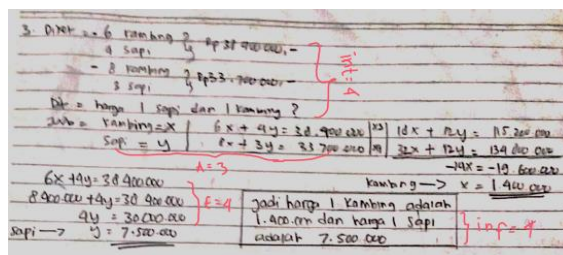 3. Diket = - 6 kambing } Rp 38.400.000,-
4 sapi
- 8 kambing } Rp 33.700.000,-
3 sapi
int = 4
Dit = harga 1 sapi dan 1 kambing ?
Jwb = kambing = x | 6x + 4y = 38.400.000 |x3| 18x + 12y = 115.200.000
sapi = y | 8x + 3y = 33.700.000 |x4| 32x + 12y = 134.800.000
A = 3
-14x = -19.600.000
kambing → x = 1.400.000
6x + 4y = 38.400.000
8.400.000 + 4y = 38.400.000
4y = 30.000.000
sapi → y = 7.500.000
E = 4
Jadi harga 1 kambing adalah
1.400.000 dan harga 1 sapi
adalah 7.500.000
inf = 4